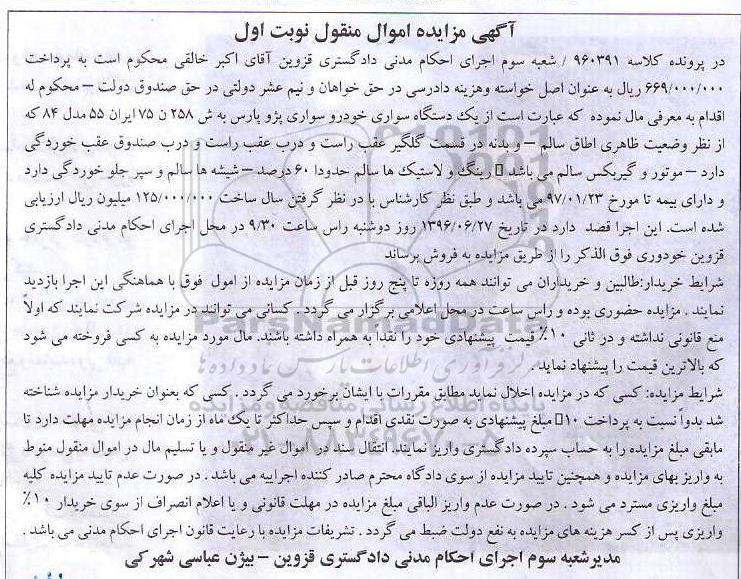 آگهی مزایده اموال منقول نوبت اول
در پرونده کلاسه ۹۶۰۳۹۱ / شعبه سوم اجرای احکام مدنی دادگستری قزوین آقای اکبر خالقی محکوم است به پرداخت
۶۶۹/۰۰۰/۰۰۰ ریال به عنوان اصل خواسته وهزینه دادرسی در حق خواهان و نیم عشر دولتی در حق صندوق دولت – محکوم له
اقدام به معرفی مال نموده که عبارت است از یک دستگاه سواری خودرو سواری پژو پارس به ش ۲۵۸ ن ۷۵ ایران ۵۵ مدل ۸۴ که
از نظر وضعیت ظاهری اطاق سالم – و بدنه در قسمت گلگیر عقب راست و درب عقب راست و درب صندوق عقب خوردگی
دارد – موتور و گیربکس سالم می باشد رینگ و لاستیک ها سالم حدودا ۶۰ درصد – شیشه ها سالم و سپر جلو خوردگی دارد
و دارای بیمه تا مورخ ۹۷/۰۱/۲۳ می باشد و طبق نظر کارشناس با در نظر گرفتن سال ساخت ۱۲۵/۰۰۰/۰۰۰ میلیون ریال ارزیابی
شده است. این اجرا قصد دارد در تاریخ ۱۳۹۶/۰۶/۲۷ روز دوشنبه راس ساعت ۹/۳۰ در محل اجرای احکام مدنی دادگستری
قزوین خودوری فوق الذکر را از طریق مزایده به فروش برساند
شرایط خریدار:طالبین و خریداران می توانند همه روزه تا پنج روز قبل از زمان مزایده از امول فوق با هماهنگی این اجرا بازدید
نمایند . مزایده حضوری بوده و راس ساعت در محل اعلامی برگزار می گردد . کسانی می توانند در مزایده شرکت نمایند که اولاً
منع قانونی نداشته و در ثانی ۱۰٪ قیمت پیشنهادی خود را نقدا به همراه داشته باشند. مال مورد مزایده به کسی فروخته می شود
که بالاترین قیمت را پیشنهاد نماید .
شرایط مزایده: کسی که در مزایده اخلال نماید مطابق مقررات با ایشان برخورد می گردد . کسی که بعنوان خریدار مزایده شناخته
شد بدواً نسبت به پرداخت ۱۰ مبلغ پیشنهادی به صورت نقدی اقدام و سپس حداکثر تا یک ماه از زمان انجام مزایده مهلت دارد تا
مابقی مبلغ مزایده را به حساب سپرده دادگستری واریز نمایند. انتقال سند در اموال غیر منقول و یا تسلیم مال در اموال منقول منوط
به واریز بهای مزایده و همچنین تایید مزایده از سوی دادگاه محترم صادر کننده اجراییه می باشد . در صورت عدم تایید مزایده کلیه
مبلغ واریزی مسترد می شود . در صورت عدم واریز الباقی مبلغ مزایده در مهلت قانونی و یا اعلام انصراف از سوی خریدار ۱۰٪
واریزی پس از کسر هزینه های مزایده به نفع دولت ضبط می گردد . تشریفات مزایده با رعایت قانون اجرای احکام مدنی می باشد .
مدیرشعبه سوم اجرای احکام مدنی دادگستری قزوین – بیژن عباسی شهرکی
ParsNamadData